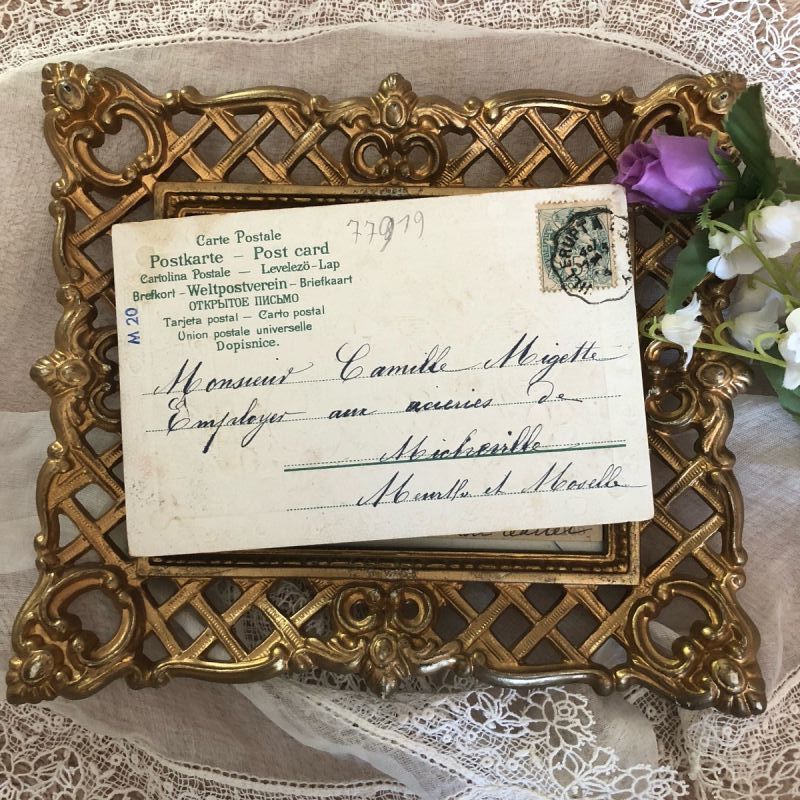 77919
Carte Postale
Postkarte – Post card
Cartolina Postale – Levelezö-Lap
Brefkort – Weltpostverein – Briefkaart
ОТКРЫТОЕ ПИСЬМО
Tarjeta postal – Carto postal
Union postale universelle
Dopisnice.
M 20
Monsieur Camille Migette
Employer aux acieries de
Micheville
Meurthe et Moselle